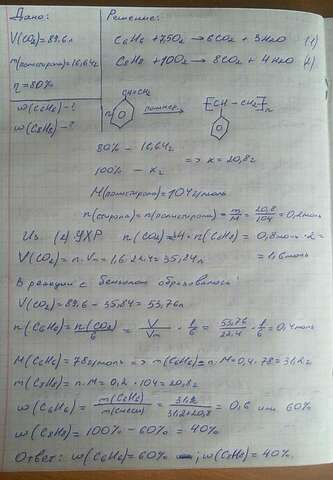 Дано:
Решение:
V(CO2)=89.6л
m(полистирола)=16,64г
η=80%
w(C6H6)-?
w(C8H8)-?
C6H6 + 7,5O2 → 6CO2 + 3H2O (1)
C8H8 + 10O2 → 8CO2 + 4H2O (2)
CH=CH2
n
полимер.
[CH - CH2]n
80% - 16,64г
=> x = 20,8г
100% - xг
M(полистирола)=104г/моль
n(стирола)=n(полистирола)=m/M=20,8/104=0,2моль
Из (2) УХР n(CO2)= n(C8H8)=
V(CO2)=n·Vm=1,6·22.4=35,84л =1,6моль
В реакции с бензолом образовалось:
V(CO2)=89.6-35,84=53,76л
n(C6H6)=n(CO2)/6=V/Vm·1/6=53,76/22.4·1/6=0,4моль
M(C6H6)=78г/моль => m(C6H6)=n·M=0,4·78=31,2г
m(C8H8)=n·M=0,2·104=20,8г
w(C6H6)=m(C6H6)/m(смеси)=31,2/31,2+20,8=0,6 или 60%
w(C8H8)=100%-60%=40%
Ответ: w(C6H6)=60%; w(C8H8)=40%.